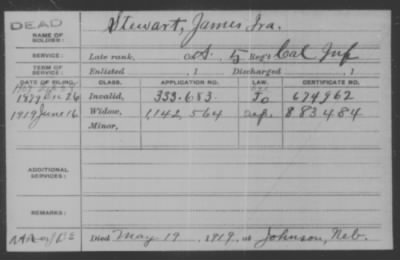 DEAD
NAME OF SOLDIER: Stewart, James Ira.
SERVICE: Late rank, Co. 5 Reg't Cal Inf
TERM OF SERVICE: Enlisted , 1 Discharged , 1
DATE OF FILING. CLASS. APPLICATION NO. LAW. CERTIFICATE NO.
1879 Dec 26 Invalid, 333.683 674962
1919 June 16 Widow, 1,142,564 883484
Minor,
ADDITIONAL SERVICES:
REMARKS:
Died May 19, 1919, at Johnson, Neb.